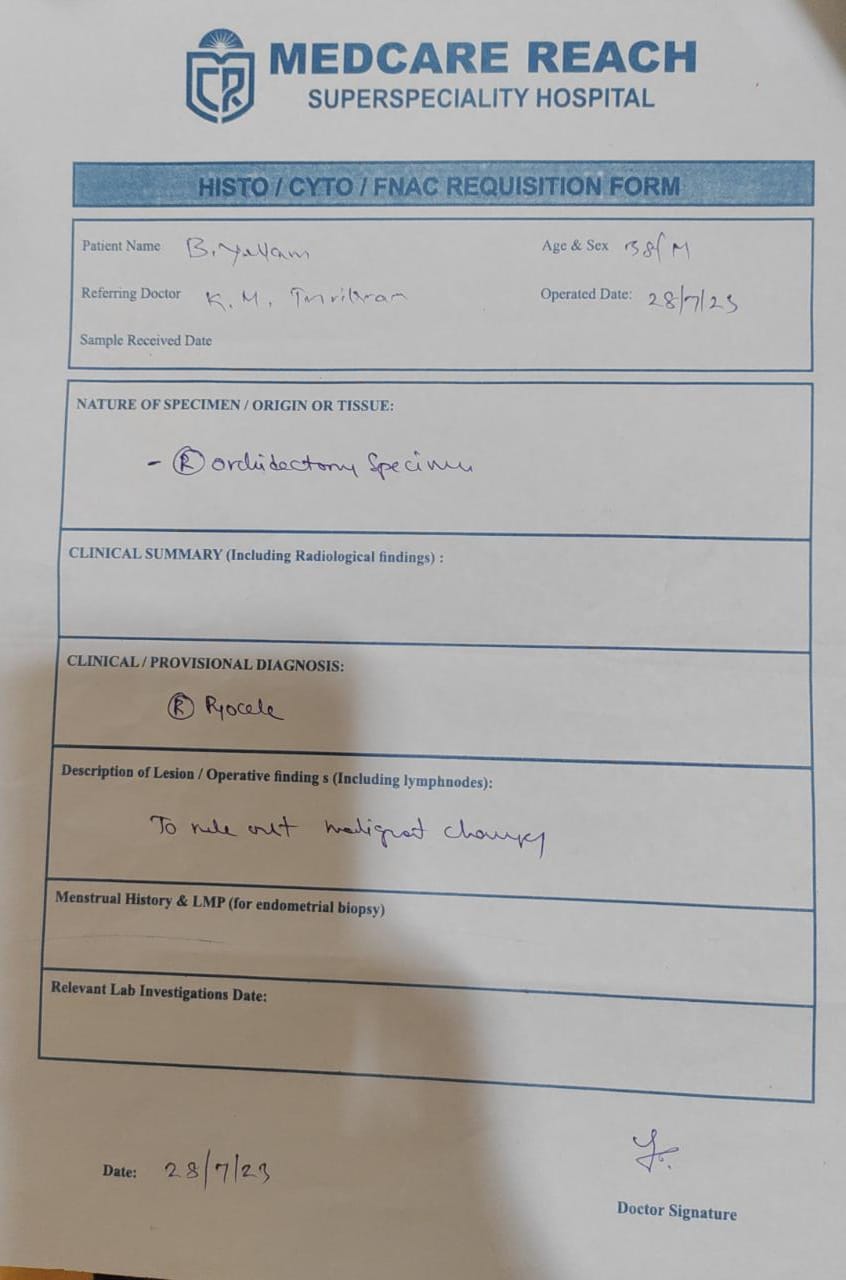 CR
MEDCARE REACH
SUPERSPECIALITY HOSPITAL
HISTO / CYTO / FNAC REQUISITION FORM
Patient Name B. Age & Sex 38/M
Referring Doctor K. M. Operated Date: 28/7/23
Sample Received Date
NATURE OF SPECIMEN / ORIGIN OR TISSUE:
- (R) orchidectomy Specimen
CLINICAL SUMMARY (Including Radiological findings) :
CLINICAL / PROVISIONAL DIAGNOSIS:
(R) Pyocele
Description of Lesion / Operative finding s (Including lymphnodes):
To rule out malignant changes
Menstrual History & LMP (for endometrial biopsy)
Relevant Lab Investigations Date:
Date: 28/7/23
Doctor Signature